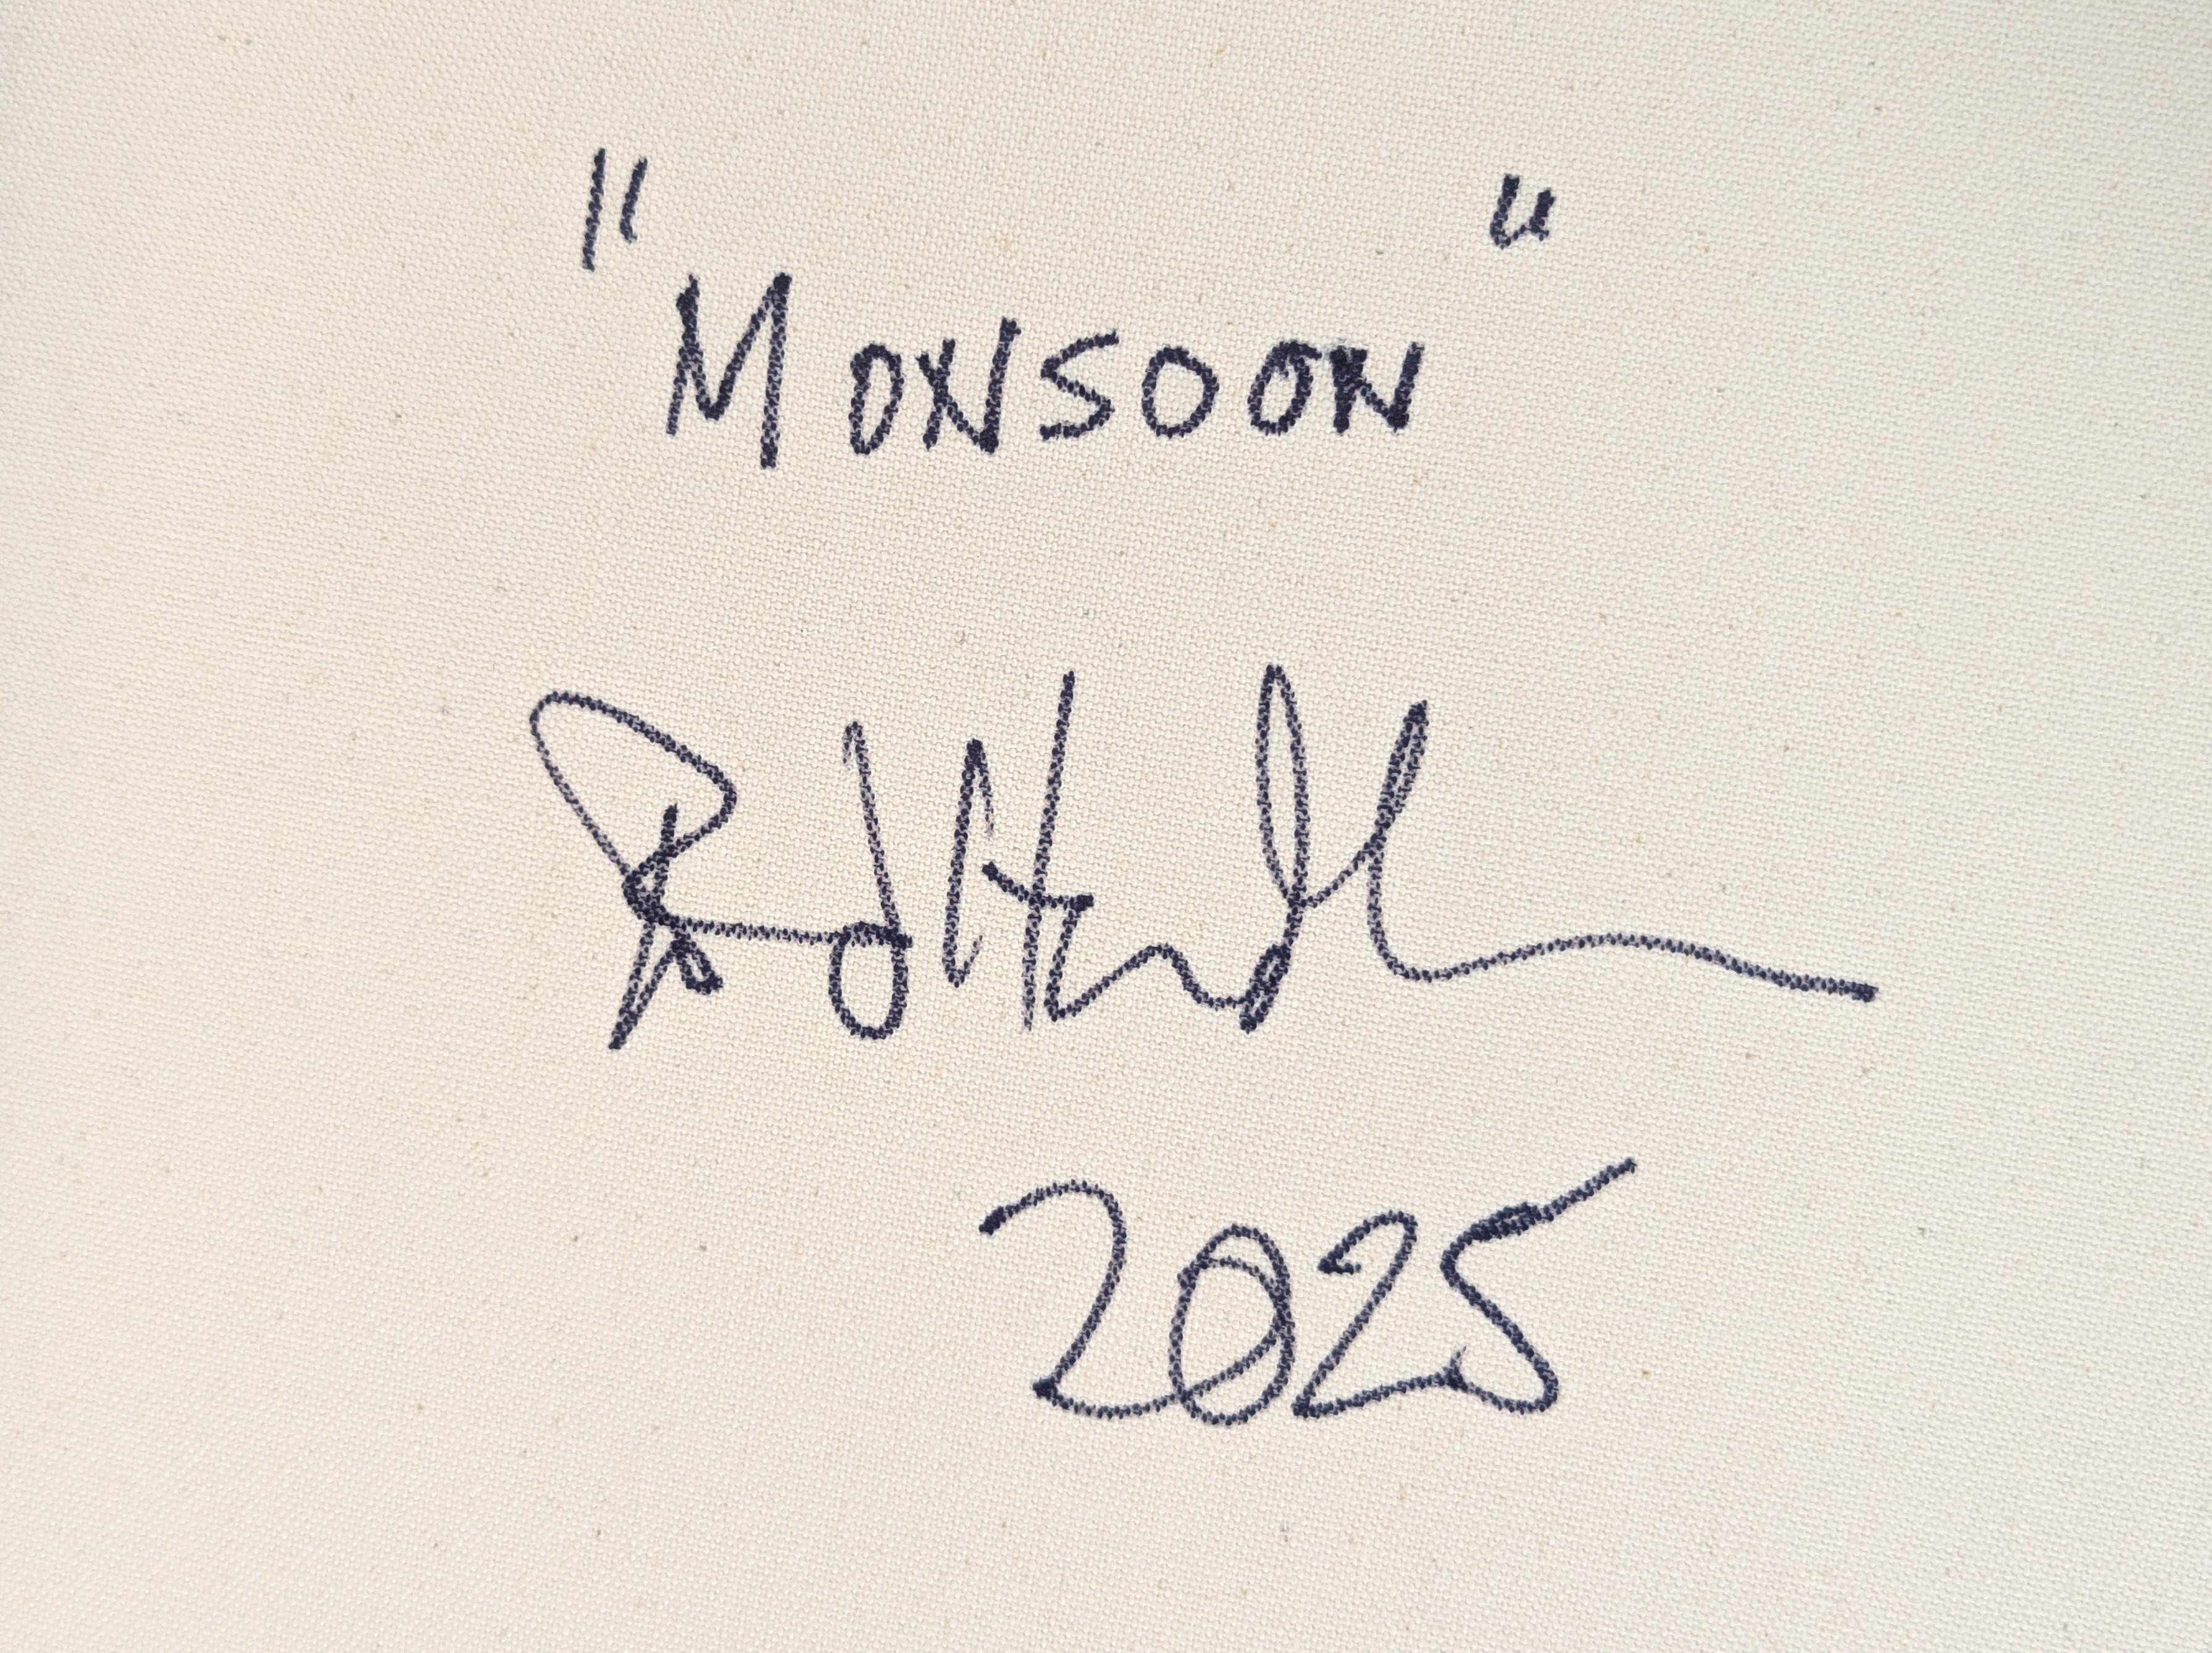 "MONSOON"
2025